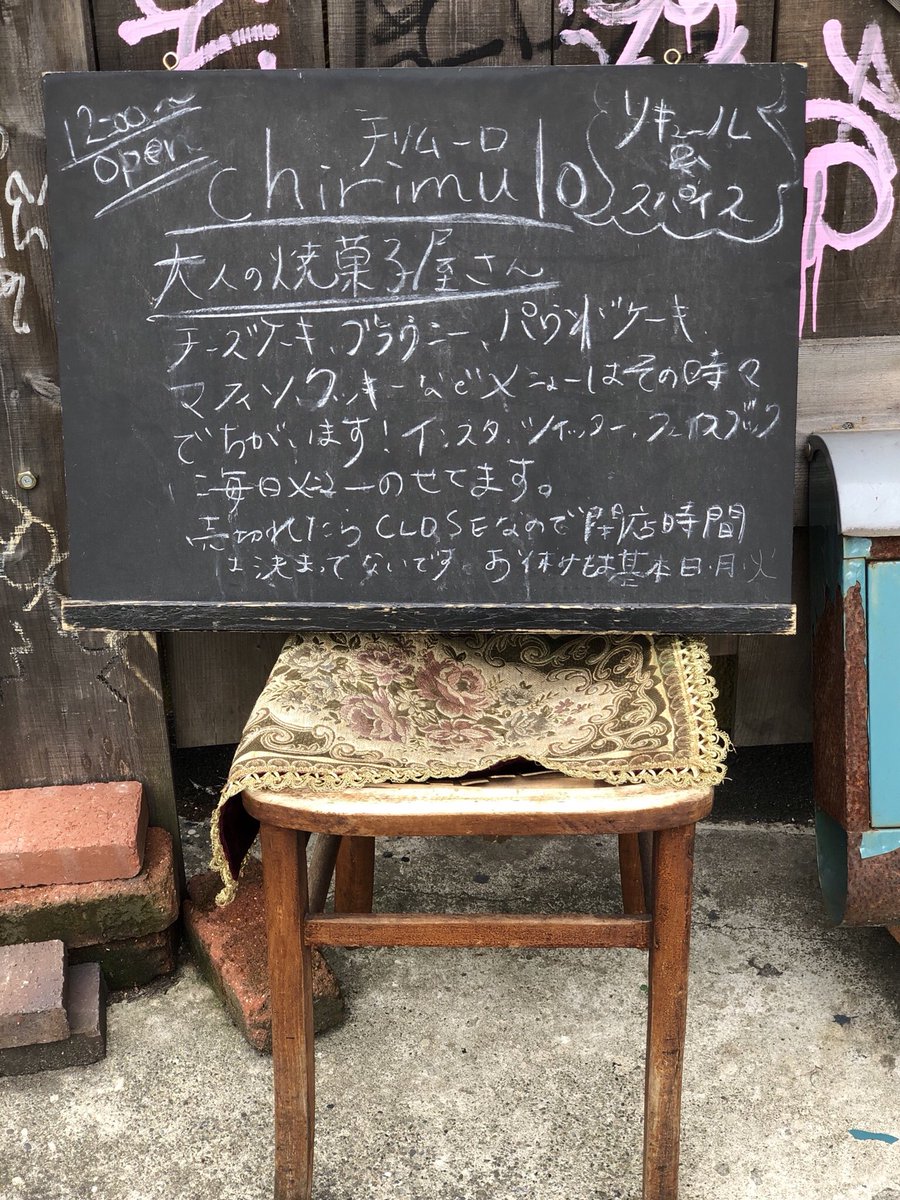 12:00〜
open
チリムーロ
chirimulo
リキュール
&
スパイス
大人の焼菓子屋さん
チーズケーキ、ブラウニー、パウンドケーキ、
マフィン、クッキーなどメニューはその時々
でちがいます!インスタ、ツイッター、フェイスブック
に毎日メニューのせてます。
売切れたらCLOSEなので閉店時間
は決まってないです。お休みは基本日・月・火